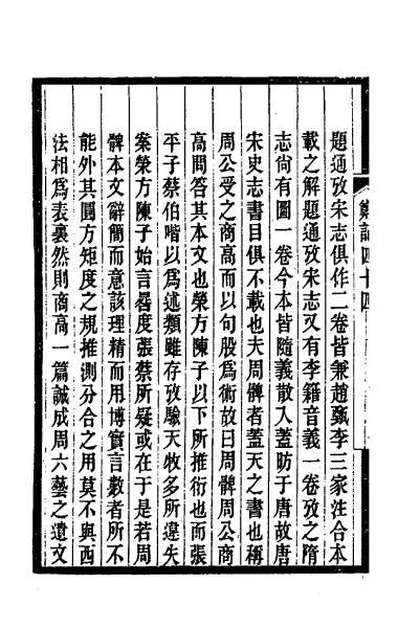 算記四十四
題通攷宋志俱作二卷皆兼趙甄李三家注合本
載之解題通攷宋志又有李籍音義一卷攷之隋
志尙有圖一卷今本皆隨義散入蓋昉于唐故唐
宋史志書目俱不載也夫周髀者蓋天之書也稱
周公受之商高而以句股爲術故曰周髀周公商
高問答其本文也榮方陳子以下所推衍也而張
平子蔡伯喈以爲述類雖存攷驗天牧多所違失
案榮方陳子始言晷度張蔡所疑或在于是若周
髀本文辭簡而意該理精而用博實言數者所不
能外其圓方矩度之規推測分合之用莫不與西
法相爲表裏然則商高一篇誠成周六藝之遺文